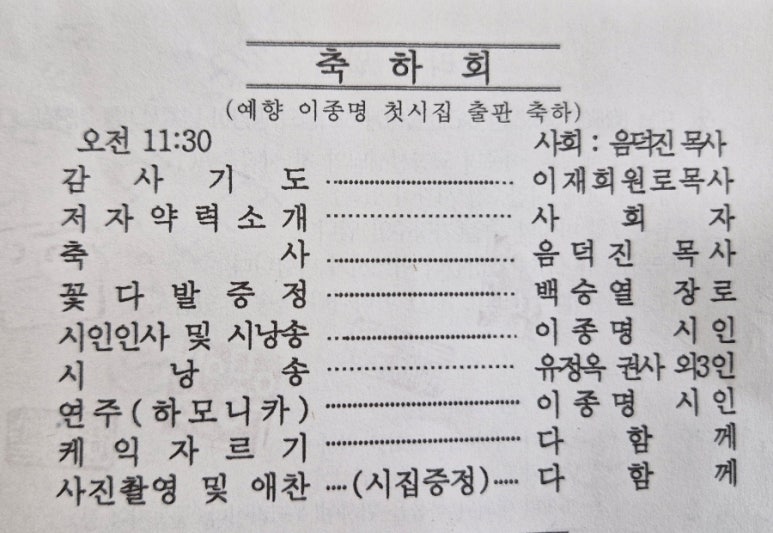 축 하 회
(예향 이종명 첫시집 출판 축하)
오전 11:30 사회 : 음덕진 목사
감 사 기 도 ........................ 이재희원로목사
저 자 약 력 소 개 ........................ 사 회 자
축 사 ........................ 음 덕 진 목 사
꽃 다 발 증 정 ........................ 백 승 열 장 로
시인인사 및 시낭송 ........................ 이 종 명 시 인
시 낭 송 ........................ 유정옥 권사 외3인
연 주 ( 하 모 니 카 ) ........................ 이 종 명 시 인
케 익 자 르 기 ........................ 다 함 께
사진촬영 및 애찬 ....(시집증정)..... 다 함 께